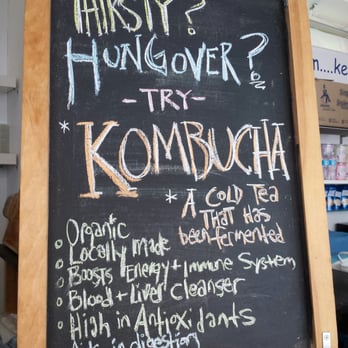 THIRSTY?
HUNGOVER?
-TRY-
* KOMBUCHA
* A COLD TEA
THAT HAS
been fermented
o Organic
o Locally made
o Boosts Energy + Immune System
o Blood + Liver Cleanser
o High in Antioxidants
Aids in digestion
m....ke